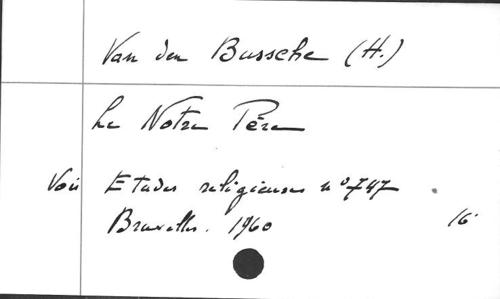 Van den Bussche (H.)
Le Notre Père
Voir Etudes religieuses n° 747
Bruxelles. 1960 16°